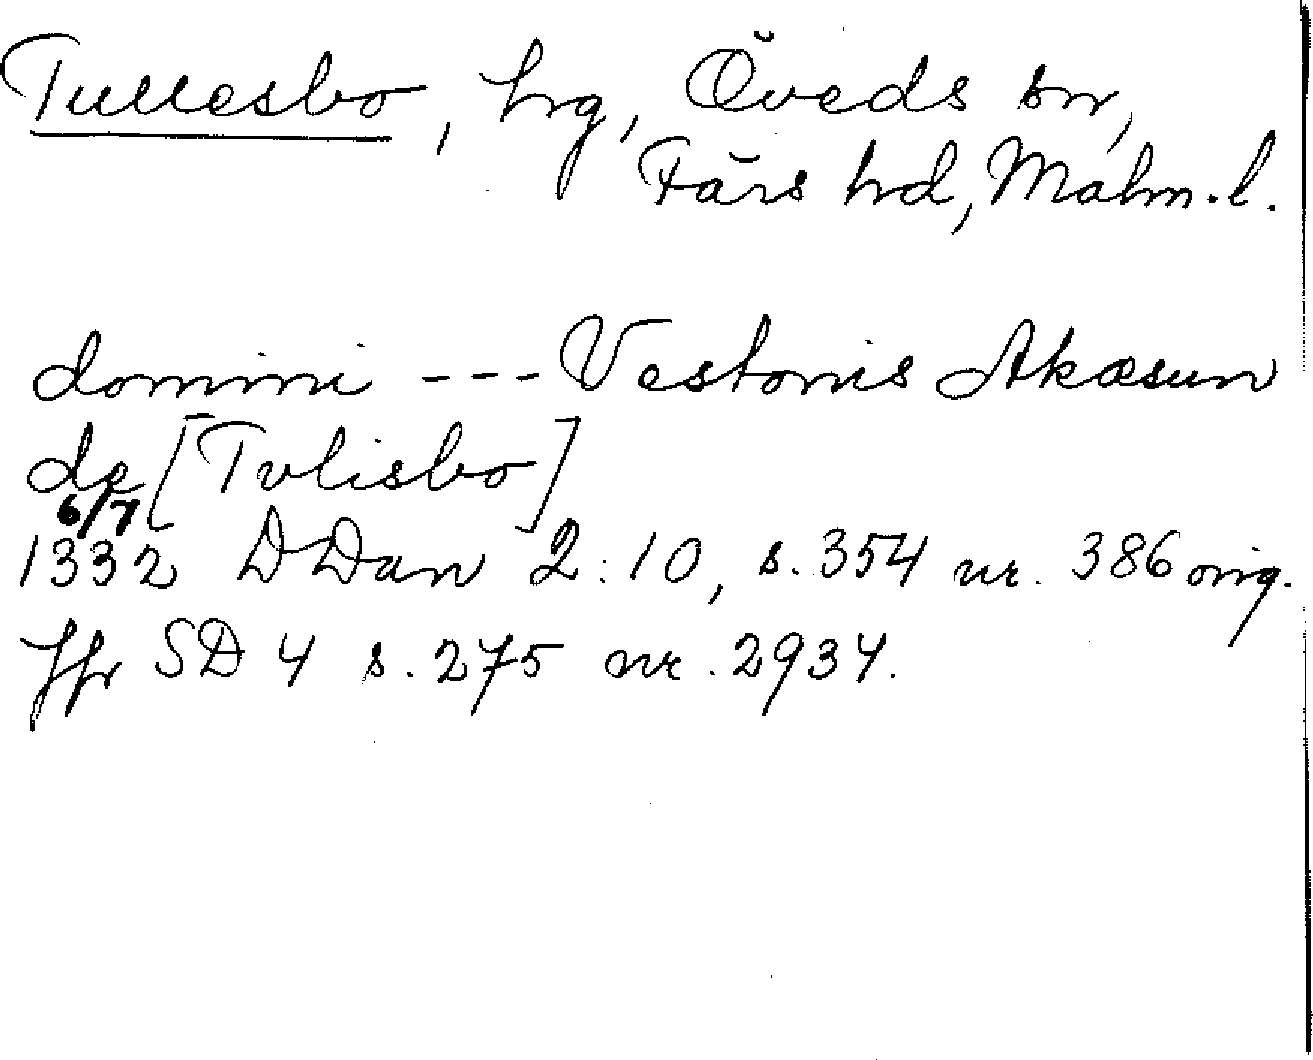 Tullesbo, hrg, Öveds sn,
Färs hd, Malm. l.
domini --- Vestonis Akæsun
de [Tvlisbo]
6/7
1332 DDan 2:10, s. 354 nr. 386 orig.
Jfr SD 4 s. 275 nr. 2934.